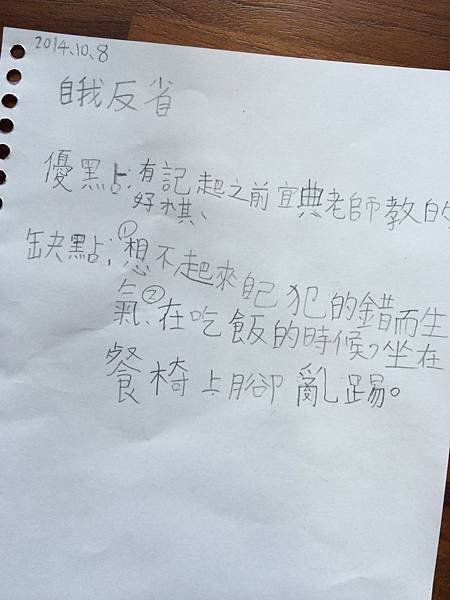 2014.10.8
自我反省
優點:有記起之前宜典老師教的
好棋、
缺點:①想不起來自己犯的錯而生
氣、②在吃飯的時候,坐在
餐椅上腳亂踢。